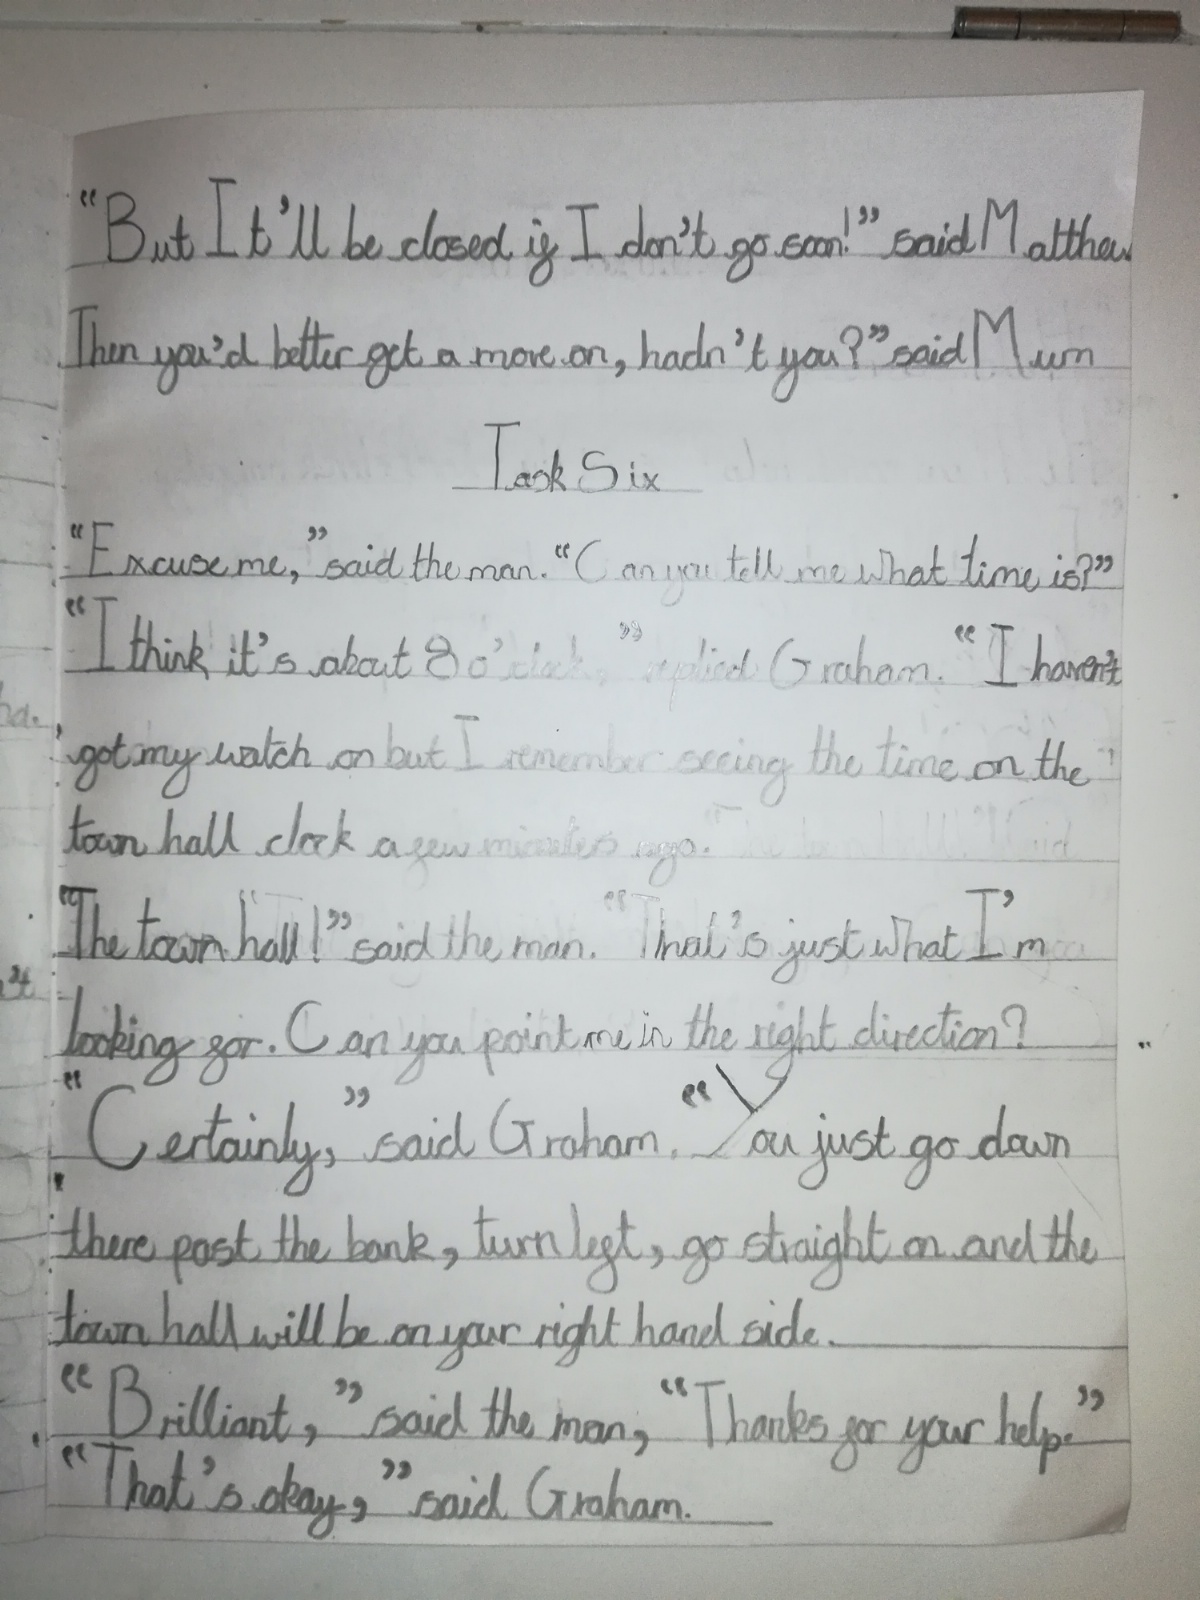 “But It’ll be closed if I don’t go soon!” said Matthew
Then you’d better get a move on, hadn’t you?” said Mum
Task Six
“Excuse me,” said the man. “Can you tell me what time is?”
“I think it’s about 8 o’clock,” replied Graham. “I haven’t
got my watch on but I remember seeing the time on the
town hall clock a few minutes ago.
“The town hall!” said the man. “That’s just what I’m
looking for. Can you point me in the right direction?
“Certainly,” said Graham. “You just go down
there past the bank, turn left, go straight on and the
town hall will be on your right hand side.
“Brilliant,” said the man, “Thanks for your help.”
“That’s okay,” said Graham.